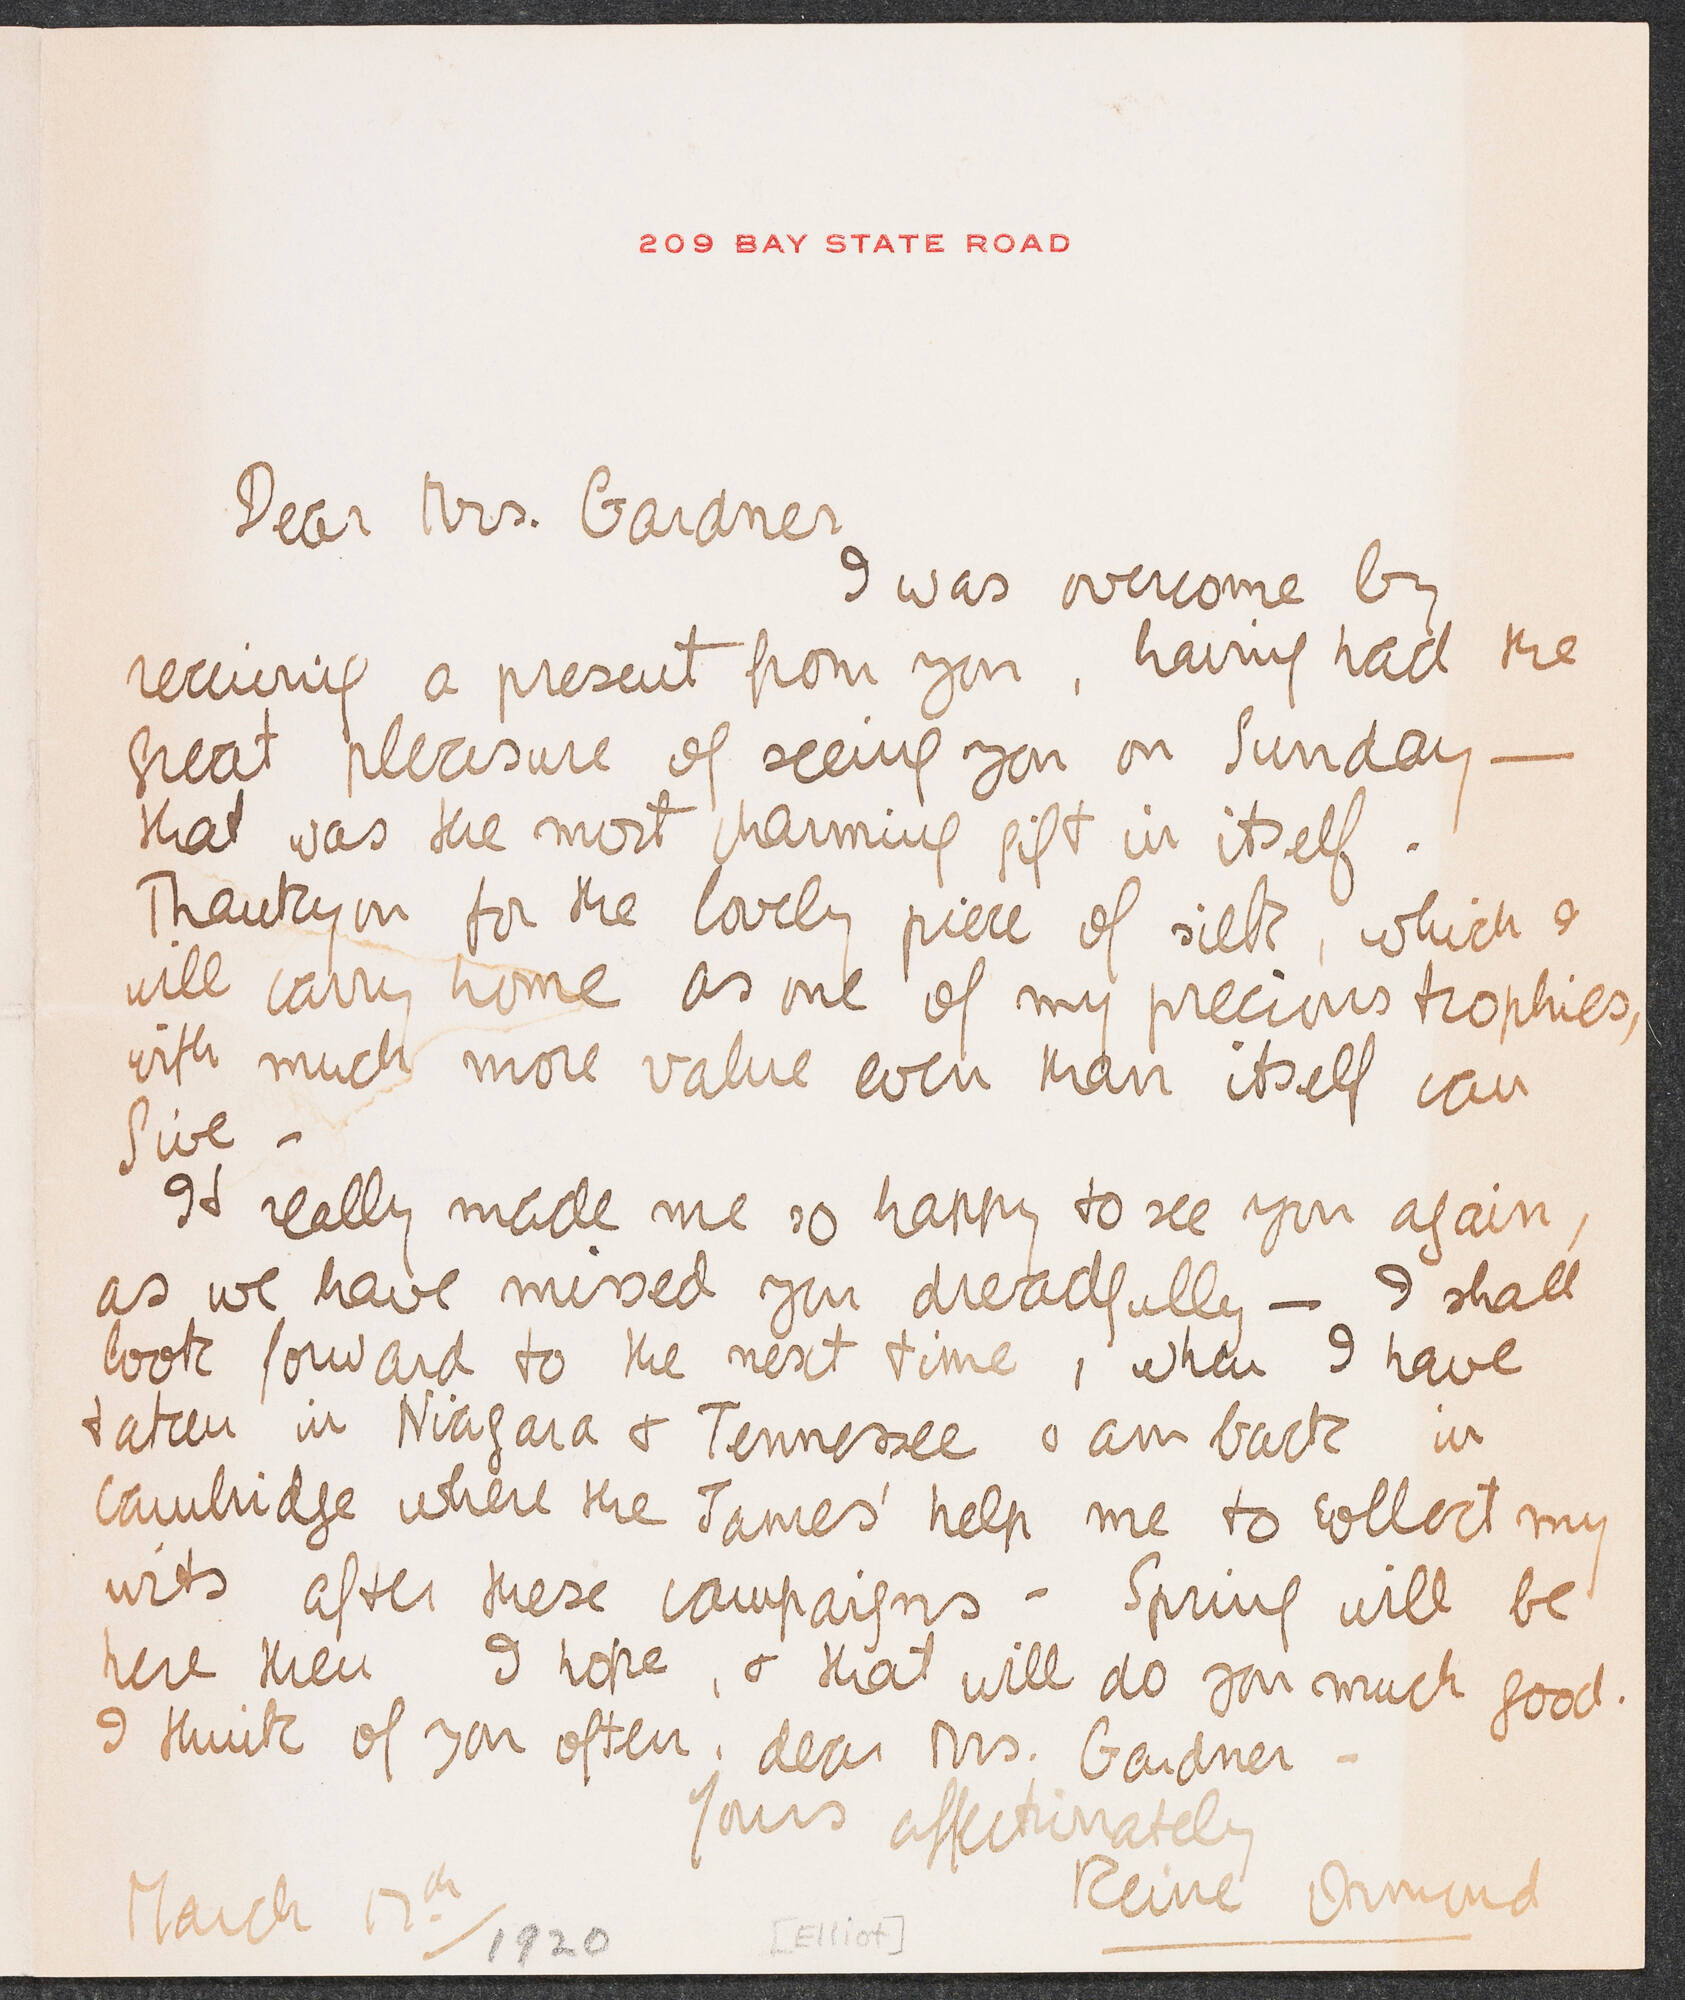 209 BAY STATE ROAD
Dear Mrs. Gardner
I was overcome by
receiving a present from you, having had the
great pleasure of seeing you on Sunday —
that was the most charming gift in itself.
Thankyou for the lovely piece of silk, which I
will carry home as one of my precious trophies,
with much more value even than itself can
give -
It really made me so happy to see you again,
as we have missed you dreadfully — I shall
look forward to the next time, when I have
taken in Niagara & Tennessee & am back in
Cambridge where the James' help me to collect my
wits after these campaigns - Spring will be
here then I hope, & that will do you much good.
I think of you often, dear Mrs. Gardner -
Yours affectionately
Reine Ormond
March 17th / 1920
[Elliot]